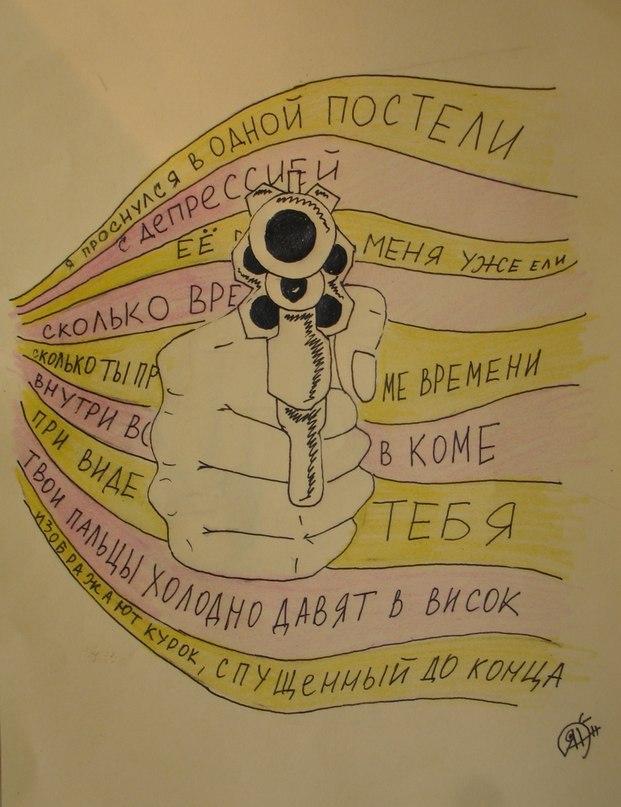 Я ПРОСНУЛСЯ В ОДНОЙ ПОСТЕЛИ
С ДЕПРЕССИЕЙ
ЕЁ МЕНЯ УЖЕ ЕЛИ
СКОЛЬКО ВРЕ
СКОЛЬКО ТЫ ПР МЕ ВРЕМЕНИ
ВНУТРИ ВС В КОМЕ
ПРИ ВИДЕ ТЕБЯ
ТВОИ ПАЛЬЦЫ ХОЛОДНО ДАВЯТ В ВИСОК
ИЗОБРАЖАЮТ КУРОК, СПУЩЕННЫЙ ДО КОНЦА